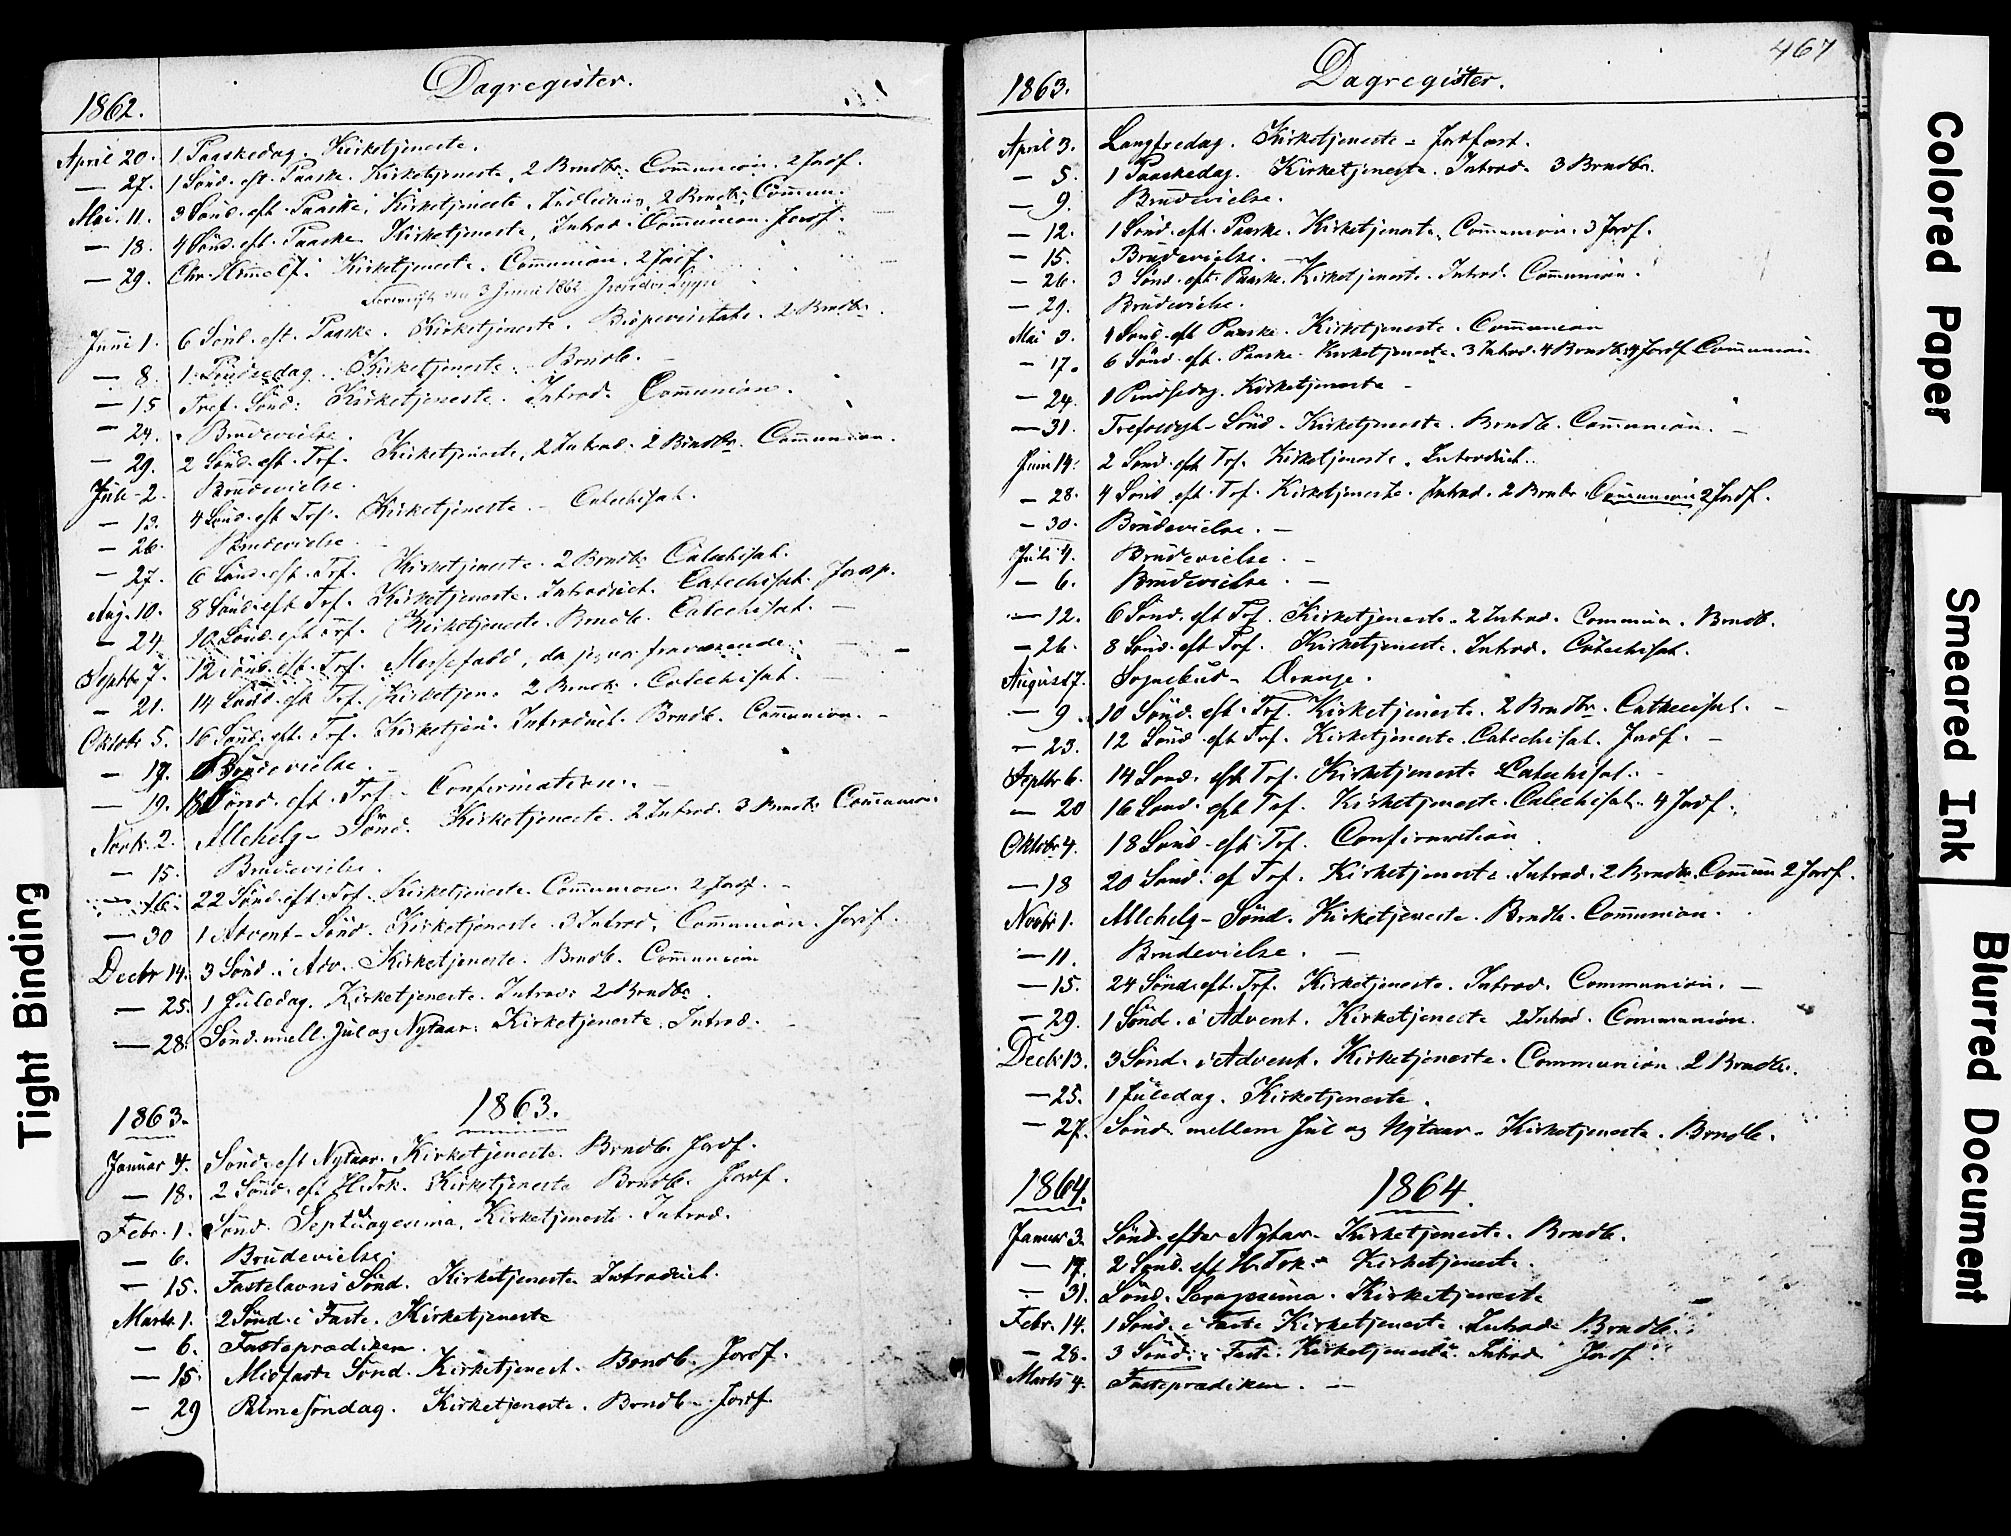 Dagregister.
1862.
April 20. 1 Paaskedag. Kirketjeneste.
— 27. 1 Sönd. eft. Paaske. Kirketjeneste, 2 Brndb. Communion. 2 Jordf.
Mai. 11. 3 Sönd. eft. Paaske. Kirketjeneste. 2 Brndb. Commun.
— 18. 4 Sönd. eft. Paaske. Kirketjeneste, Introd. Communion. Jordf.
— 29. Chr. Himmelf. Kirketjeneste. Communion. 2 Jordf.
3 Juni 1862
Juni 1. 6 Sönd. eft. Paaske. Kirketjeneste. Bispevisitats. 2 Brndb.
— 8. 1 Pindsedag. Kirketjeneste. Brndb. —
— 15 Tref. Sönd. Kirketjeneste. Introd. Communion.
— 24. Brudevielse.
— 29. 2 Sönd. eft. Tref. Kirketjeneste, 2 Introd. 2 Brndb. Communion.
Juli - 2. Brudevielse.
— 13. 4 Sönd. eft Tref. Kirketjeneste. — Catechisat.
— 26. Brudevielse.
— 27. 6 Sönd. eft. Tref. Kirketjeneste. 2 Brndb. Catechisat.
Aug. 10. 8 Sönd. eft Tref. Kirketjeneste. Introduct. Catechisat. Jordp.
— 24. 10 Sönd. eft Tref. Kirketjeneste. Brndb. Catechisat. —
Septbr 7. 12 Sönd. eft. Tref. Messefald, da jeg var fraværende.
— 21. 14 Sönd. eft Tref. Kirketjen. 2 Brndb. Catechisat.
Oktobr 5. 16 Sönd. eft. Tref. Kirketjen. Introduct. Brndb. Communion. —
— 17. Brudevielse. —
— 19. 18 Sönd. eft. Tref. — Confirmation.
Novbr. 2. Allehelg — Sönd. Kirketjeneste. 2 Introd. 3 Brndb. Communion.
— 15. Brudevielse.
— 16. 22 Sönd. eft. Tref. Kirketjeneste. Communion. 2 Jordf. —
— 30 1 Advent — Sönd. Kirketjeneste. 3 Introd. Communion. Jordf.
Decbr 14. 3 Sönd. i Adv. Kirketjeneste. Brndb. Communion
— 25. 1 Juledag. Kirketjeneste. Introd. 2 Brndb.
— 28. Sönd. mell. Jul og Nytaar. Kirketjeneste. Introd.
1863. 1863.
Januar 4. Sönd. eft Nytaar. Kirketjeneste. Brndb. Jordf.
— 18. 2 Sönd. eft H. Trk. Kirketjeneste Brndb. Jordf.
Febr. 1. Sönd. Septuagesima. Kirketjeneste. Introd.
— 6. Brudevielse.
— 15. Fastelavns Sönd. Kirketjeneste Introduct.
Marts. 1. 2 Sönd. i Faste. Kirketjeneste
— 6. Fasteprædiken.
— 15. Midfaste Sönd. Kirketjenest. Brndb. Jordf.
— 29 Palmesöndag. Kirketjeneste. Brndb. Jordf.
467
Dagregister.
1863.
April 3. Langfredag. Kirketjeneste — Jordfæst.
— 5. 1 Paaskedag. Kirketjeneste. Introd. 3 Brndbr.
— 9. Brudevielse.
— 12. 1 Sönd. eft. Paaske. Kirketjeneste. Communion. 3 Jordf.
— 15. Brudevielse. —
— 26. 3 Sönd. eft. Paaske. Kirketjeneste. Introd. Communion.
— 29. Brudevielse.
Mai 3. 4 Sönd. eft Paaske. Kirketjeneste. Communion
— 17. 6 Sönd. eft. Paaske. Kirketjeneste. 3 Introd. 4 Brndb. 4 Jordf. Communion
— 24. 1 Pindsedag. Kirketjeneste —
— 31. Trefoldigh — Sönd. Kirketjeneste. Brndb. Communion. —
Juni 14. 2 Sönd. eft Tref. Kirketjeneste. Introduct.
— 28. 4 Sönd. eft. Tref. Kirketjeneste. Introd. 2 Brndbr. Communion 2 Jordf.
— 30. Brudevielse. —
Juli 4. Brudevielse. —
— 6. Brudevielse. —
— 12. 6 Sönd. eft Tref. Kirketjeneste. 2 Introd. Communion. Brndb.
— 26. 8 Sönd. eft Tref. Kirketjeneste. Introd. Catechisat.
August 7. Sognebud —
— 9. 10 Sönd. eft. Tref. Kirketjeneste. 2 Brndbr. Cathecisat. —
— 23. 12 Sönd. eft Tref. Kirketjeneste. Catechisat. Jordf. —
Septbr 6. 14 Sönd. eft Tref. Kirketjeneste Catechisat.
— 20 16 Sönd. eft Tref. Kirketjeneste. Catechisat. 4 Jordf.
Oktobr 4. 18 Sönd. eft. Tref. Confirmation
— 18 20 Sönd. ef Tref. Kirketjeneste. Introd. 2 Brndbr. Commun 2 Jordf.
Novbr 1. Allehelg — Sönd. Kirketjeneste. Brndb. Communion.
— 11. Brudevielse. —
— 15. 24 Sönd. eft. Tref. Kirketjeneste. Introd. Communion. —
— 29. 1 Sönd. i Advent. Kirketjeneste 2 Introd. Communion.
Decb. 13. 3 Sönd. i Advent. Kirketjeneste. Communion. 2 Brndb.
— 25. 1 Juledag. Kirketjeneste.
— 27. Sönd. mellem Jul og Nytaar. Kirketjeneste. Brndb.
1864. 1864.
Januar 3. Sönd. efter Nytaar. Kirketjeneste. Brndb.
— 17. 2 Sönd. eft H. Trk. — Kirketjeneste.
— 31. Sönd. Sexagesima. Kirketjeneste
Febr. 14. 1 Sönd. i Faste Kirketjeneste. Introd. Brndb.
— 28. 3 Sönd. i Faste. Kirketjeneste. Introd Jordf.
Marts 4. Fasteprædiken. —
Colored Paper
Smeared Ink
Blurred Document
Tight Binding